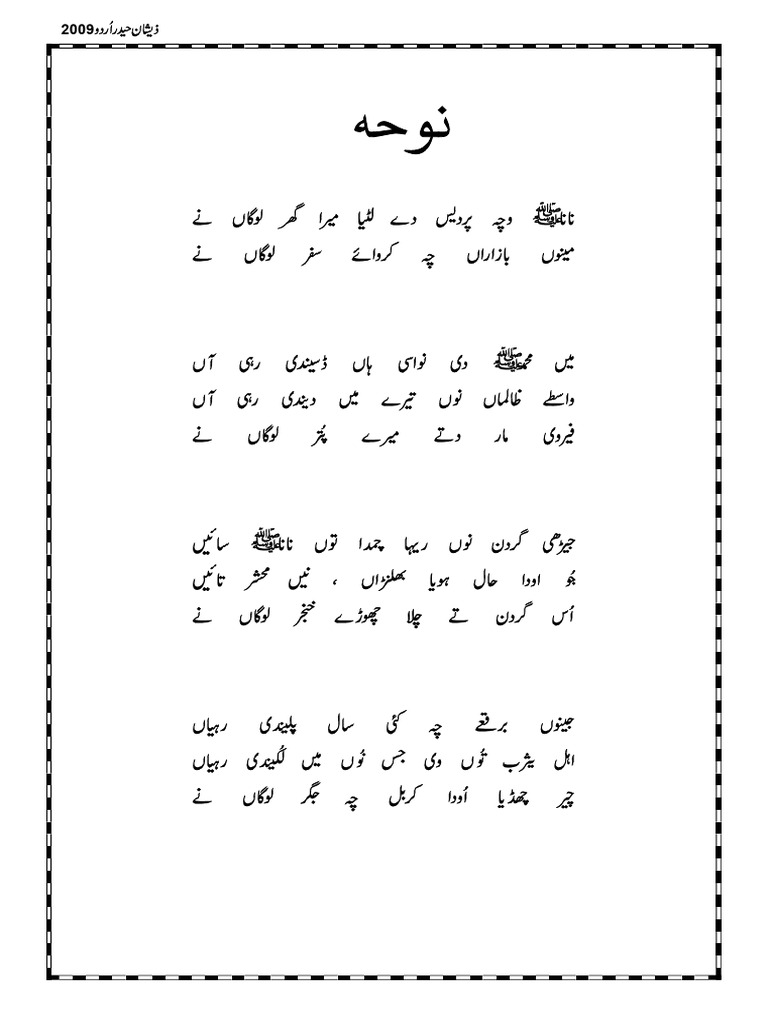 ذیشان حیدر اُردو 2009
نوحہ
ناناﷺ وچہ پردیس دے لٹیا میرا گھر لوگاں نے
مینوں بازاراں چہ کروائے سفر لوگاں نے
میں محمدﷺ دی نواسی ہاں ڈسیندی رہی آں
واسطے ظالماں نوں تیرے میں دیندی رہی آں
فیروی مار دتے میرے پُتر لوگاں نے
جیڑھی گردن نوں ریہا چمدا توں ناناﷺ سائیں
جُو اودا حال ہویا بھلنڑاں ، نیں محشر تائیں
اُس گردن تے چلا چھوڑے خنجر لوگاں نے
جینوں برقعے چہ کئی سال پلیندی رہیاں
اہل یثرب تُوں وی جس نُوں میں لُکیندی رہیاں
چیر چھڈیا اُودا کربل چہ جگر لوگاں نے